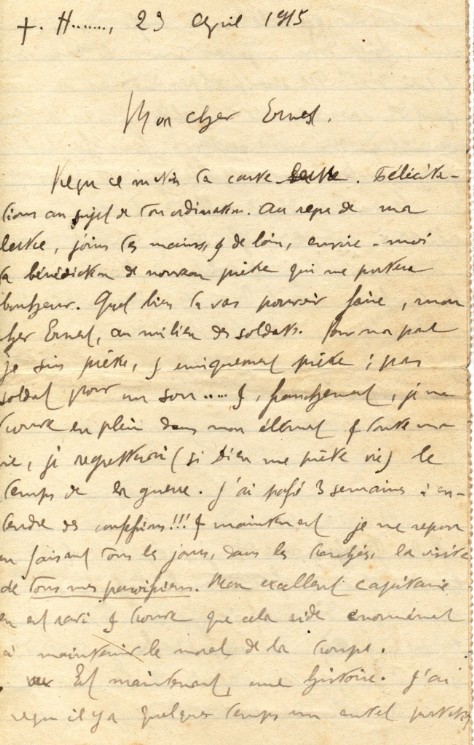 +. H......, 23 April 1915
Mon cher Ernest.
Reçu ce matin ta carte. Félicita-
tions au sujet de ton ordination. Au reçu de ma
lettre, joins tes mains, & de loin, envoie-moi
ta bénédiction de nouveau prêtre qui me portera
bonheur. Quel bien tu vas pouvoir faire, mon
cher Ernest, au milieu des soldats. Pour ma part
je suis prêtre, & uniquement prêtre ; pas
soldat pour un sou..... &, franchement, je me
trouve en plein dans mon élément & toute ma
vie, je regretterai (si Dieu me prête vie) le
temps de la guerre. J'ai passé 3 semaines à en-
tendre des confessions!!! & maintenant je me repose
en faisant tous les jours, dans les tranchées, la visite
de tous mes paroissiens. Mon excellent capitaine
en est ravi & trouve que cela aide énormément
à maintenir le moral de la troupe.
Et maintenant, une histoire. J'ai
reçu il y a quelques temps un autel portatif